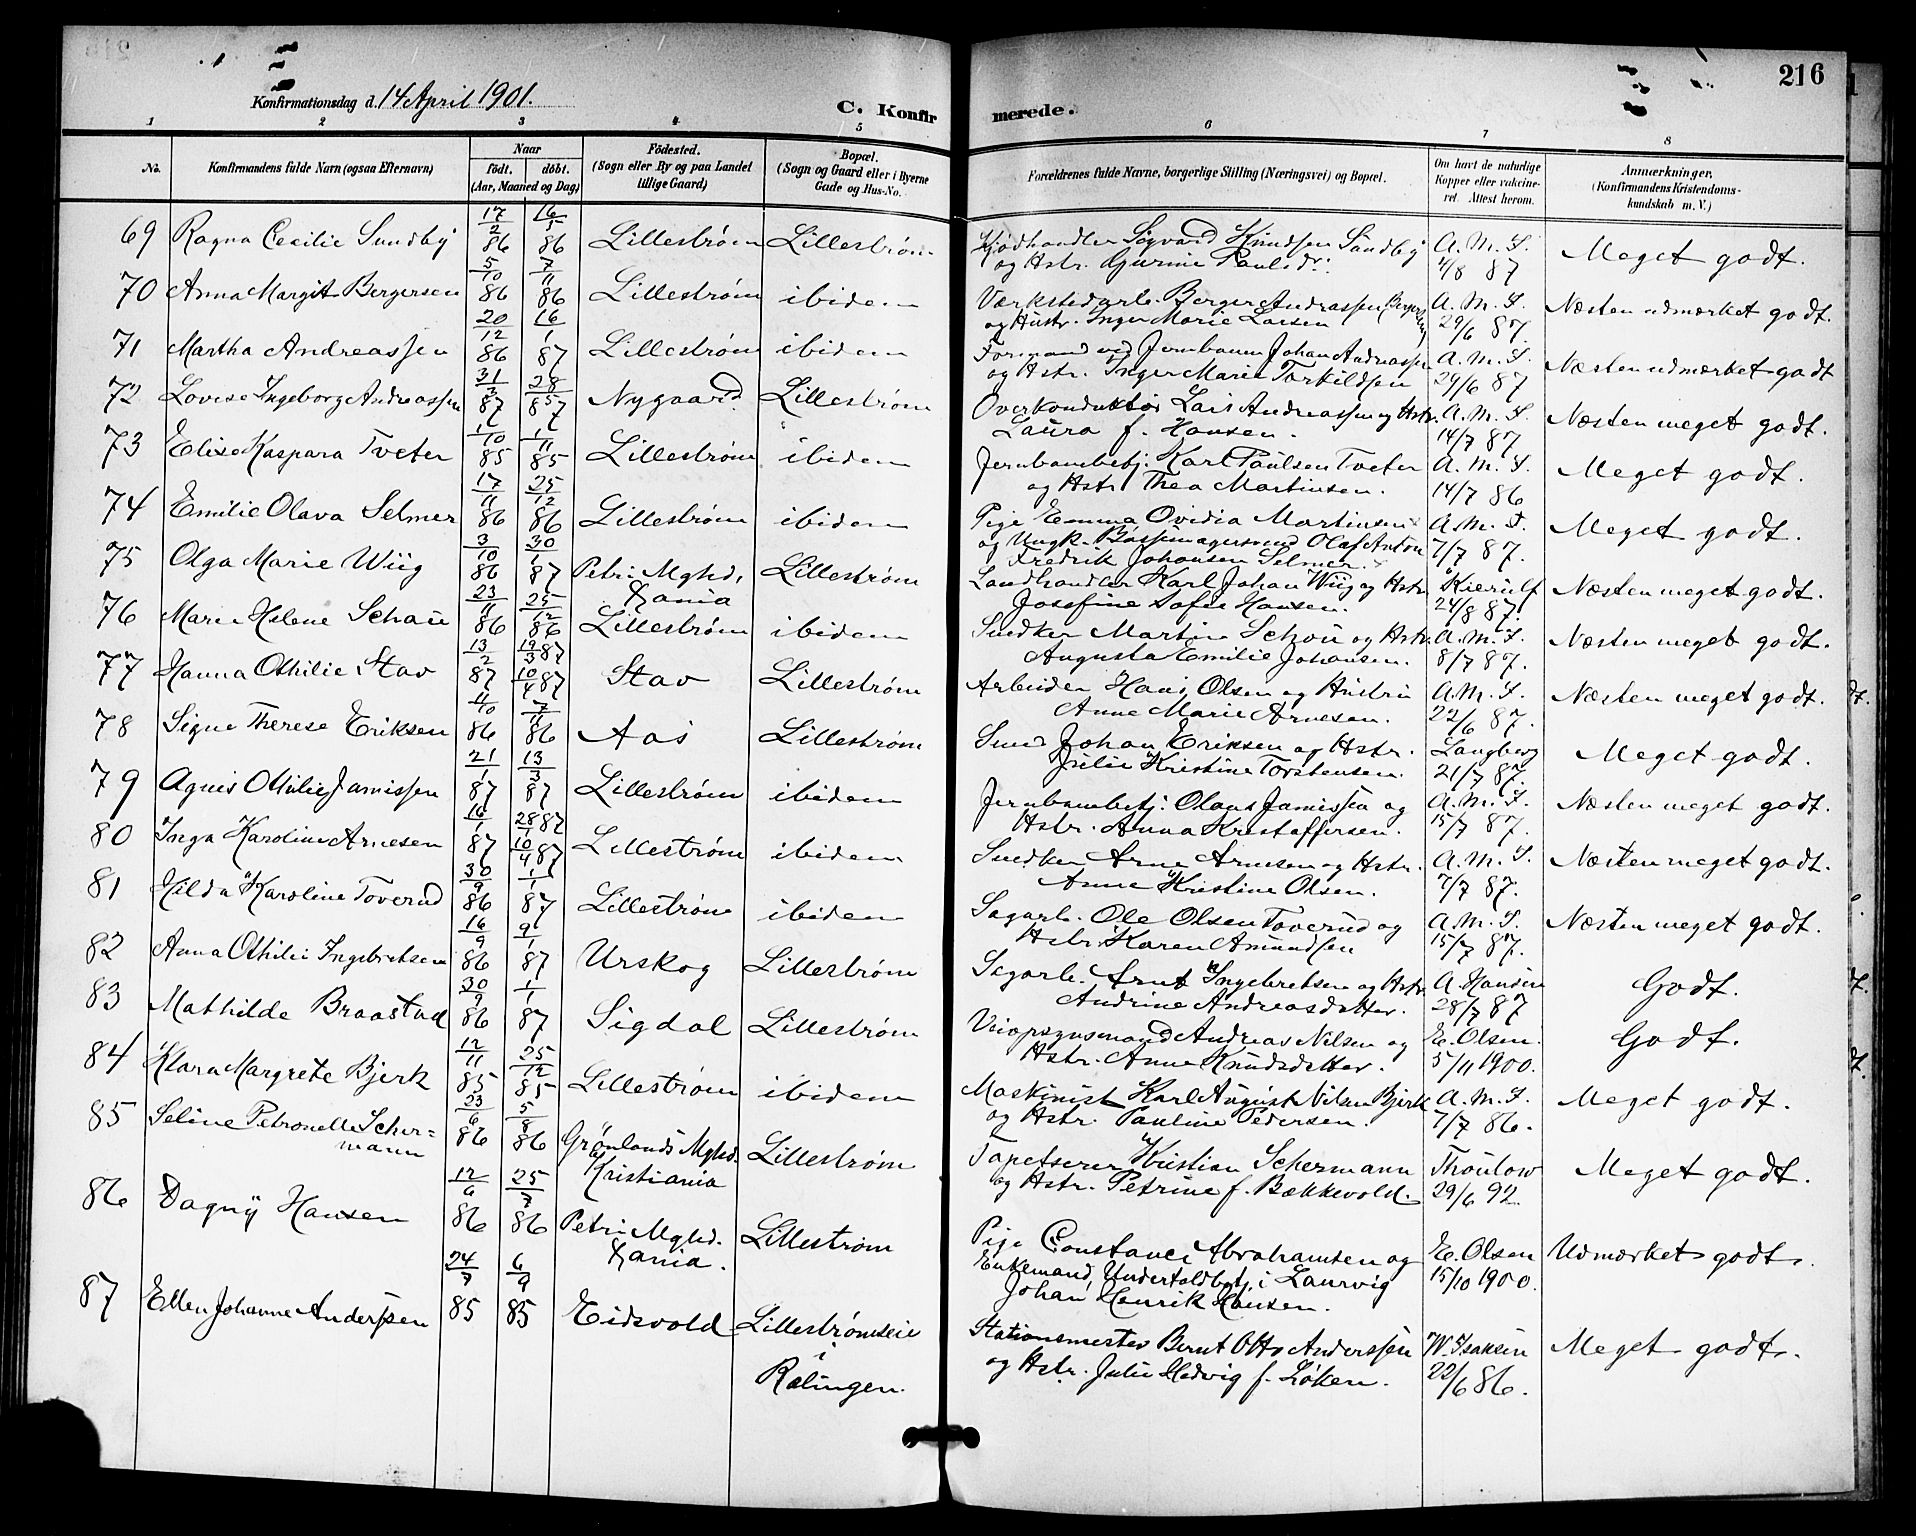 216
Konfirmationsdag d. 14 April 1901.
C. Konfirmerede.
1 2 3 4 5 6 7 8
No.
Konfirmandens fulde Navn (ogsaa Efternavn)
Naar
født. døbt.
(Aar, Maaned og Dag)
Fødested.
(Sogn eller By og paa Landet
tillige Gaard)
Bopæl.
(Sogn og Gaard eller i Byerne
Gade og Hus-No.
Forældrenes fulde Navne, borgerlige Stilling (Næringsvei) og Bopæl.
Om havt de naturlige
Kopper eller vakcine-
ret. Attest herom.
Anmærkninger,
(Konfirmandens Kristendoms-
kundskab m. V.)
69 Ragna Cecilie Sundby 17/2 86 16/5 86 Lillestrøm Lillestrøm Kjødhandler Sigvard Knudsen Sundby A. M. S. Meget godt.
og Hstr. Gurine Paulsdr. 4/8 87
70 Anna Margit Bergersen 5/10 86 7/11 86 Lillestrøm ibidem Værkstedarb. Berger Andrassen Bergersen A. M. S. Næsten udmærket godt.
og Hustr. Inger Marie Larsen 29/6 87.
71 Martha Andreassen 20/12 86 16/1 87 Lillestrøm ibidem Formand ved Jernbanen Johan Andreassen A. M. S. Næsten udmærket godt
og Hstr. Inger Marie Torkildsen 29/6 87
72 Lovise Ingeborg Andreassen 31/3 87 28/5 87 Nygaard. Lillestrøm Overkonduktør Lars Andreassen og Hstr. A. M. S. Næsten meget godt.
Laura f. Hansen. 14/7 87
73 Elise Kaspara Tveter 1/10 85 1/11 85 Lillestrøm ibidem Jernbanebetj. Karl Paulsen Tveter A. M. S. Meget godt.
og Hstr. Thea Martinsen. 14/7 86
74 Emilie Olava Selmer 17/11 86 25/12 86 Lillestrøm ibidem Pige Emma Ovidia Martinsen A. M. S. Meget godt.
og Ungk. Bøssemagersvend Olaf Anton 7/7 87.
Fredrik Johansen Selmer.
75 Olga Marie Wiig 3/10 86 30/1 87 Petri Mghd, Lillestrøm Landhandler Karl Johan Wiig og Hstr. Kierulf Næsten meget godt.
Xania Josefine Sofie Hansen. 24/8 87.
76 Maren Helene Schou 23/11 86 25/12 86 Lillestrøm ibidem Snedker Martin Schou og Hstr. A. M. S. Næsten meget godt.
Augusta Emilie Johansen. 8/7 87.
77 Hanna Othilie Stav 13/2 87 19/3 87 10/4 87 Stav Lillestrøm Arbeider Hans Olsen og Hustru A. M. S. Næsten meget godt.
Anne Marie Arnesen. 22/6 87.
78 Signe Therese Eriksen 4/10 86 7/11 86 Aas Lillestrøm Smed Johan Eriksen og Hstr. Langberg Meget godt.
Julie Kristine Torstensen. 21/7 87.
79 Agnes Othilie Jamissen 21/1 87 13/3 87 Lillestrøm ibidem Jernbanebetj. Olaus Jamissen og A. M. S. Næsten meget godt.
Hstr. Anna Kristoffersen. 15/7 87.
80 Inga Karoline Arnesen 16/1 87 28/1 87 10/4 87 Lillestrøm ibidem Snedker Arne Arnesen og Hstr. A. M. S. Næsten meget godt.
Anne Kristine Olsen. 7/7 87.
81 Hilda Karoline Toverud 30/9 86 1/1 87 Lillestrøm ibidem Sagarb. Ole Olsen Toverud og A. M. S. Næsten meget godt.
Hstr. Karen Amundsen 15/7 87.
82 Anna Othilie Ingebretsen 16/9 86 9/1 87 Urskog Lillestrøm Sagarb. Arnt Ingebretsen og Hstr. A. Hansen Godt.
Andrine Andreasdatter. 28/7 87
83 Mathilde Braastad 30/9 86 1/1 87 Sigdal Lillestrøm Veiopsynsmand Andreas Nilsen og E. Olsen. Godt.
Hstr. Anne Knudsdatter. 5/11 1900.
84 Klara Margrete Bjerk 12/11 85 25/12 85 Lillestrøm ibidem Maskinist Karl August Nilsen Bjerk A. M. S. Meget godt.
og Hstr. Pauline Pedersen. 7/7 86.
85 Seline Petronelle Scher= 23/6 86 5/8 86 Grønlands Mghd. Lillestrøm Tapetserer Kristian Schermann Thoulow Meget godt.
mann Kristiania og Hstr. Petrine f. Bækkevold. 29/6 92.
86 Dagny Hansen 12/6 86 25/7 86 Petri Mghd. Lillestrøm Pige Constance Abrahamsen og E. Olsen Udmærket godt.
Xania. Enkemand, Undertoldbetj. i Laurvig 15/10 1900.
Johan Henrik Hansen.
87 Ellen Johanne Anderssen 24/7 85 6/9 85 Eidsvold Lillestrømseie Stationsmester Bernt Otto Anderssen W. Isaksen Meget godt.
i og Hstr. Julie Hedvig f. Løken. 22/6 86.
Rælingen.